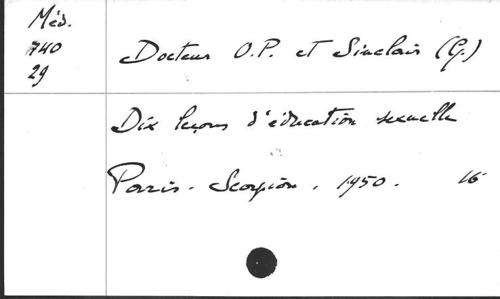 Méd.
740
29
Docteur O.P. et Sinclair (G.)
Dix leçons d'éducation sexuelle
Paris. Scorpion. 1950. 16